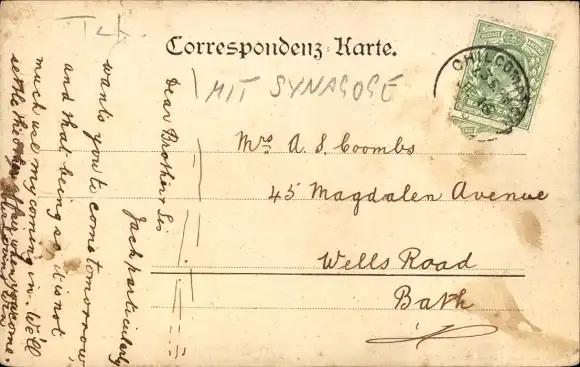 T
Correspondenz-Karte.
MIT SYNAGOGE
CHILCOMPTON
Mrs A. S. Coombs
45 Magdalen Avenue
Wells Road
Bath
Dear Brother & Sis
Jack particularly
wants you to come tomorrow,
and that being so, it is not
much use my coming in. We'll
settle the other affair when you come.